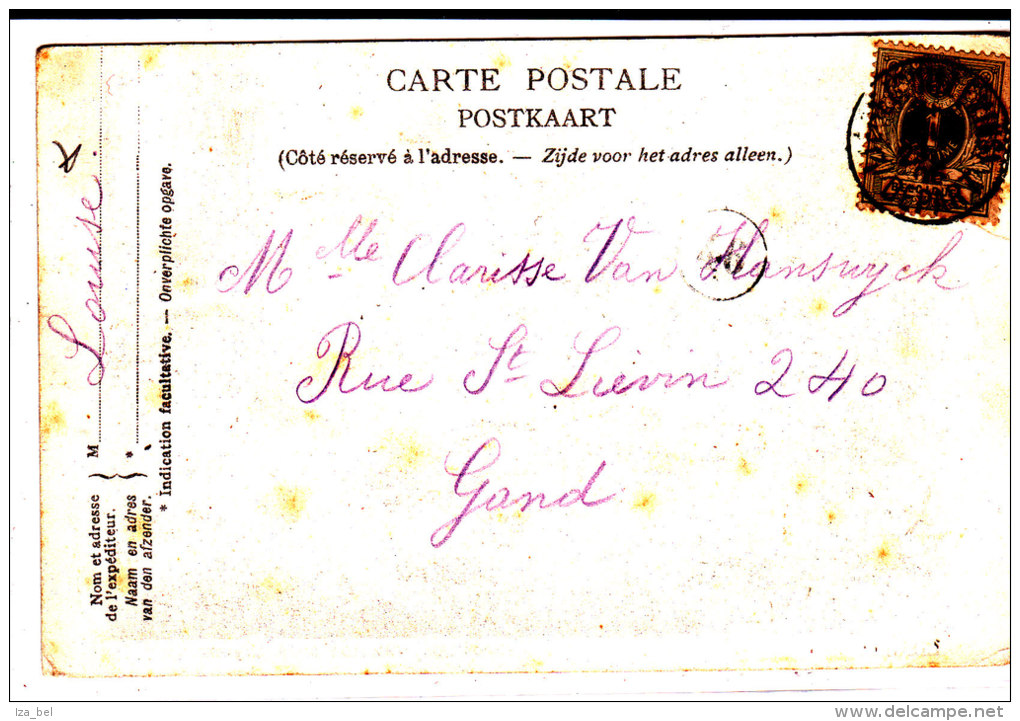 CARTE POSTALE
POSTKAART
(Côté réservé à l'adresse. — Zijde voor het adres alleen.)
Mlle Clarisse Van Hanswyck
Rue St Liévin 240
Gand
Nom et adresse
de l'expéditeur.
Naam en adres
van den afzender.
M Louise
*
* Indication facultative. — Onverplichte opgave.
1
Iza_bel
delcampe.net